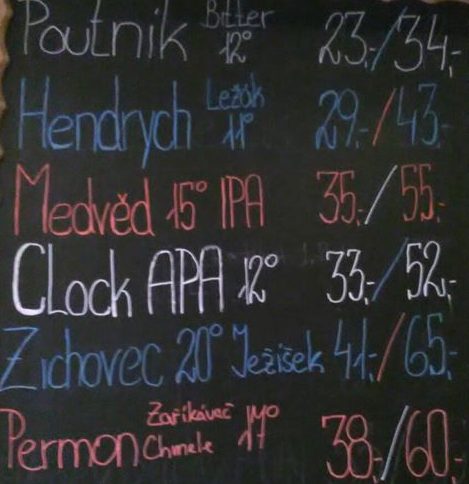 Poutnik Bitter 12° 23,-/34,-
Hendrych Ležák 11° 29,-/43,-
Medvěd 15° IPA 35,-/55,-
CLock APA 12° 33,-/52,-
Zichovec 20° Ježíšek 41,-/65,-
Permon Zaříkávač Chmele 17° 38,-/60,-